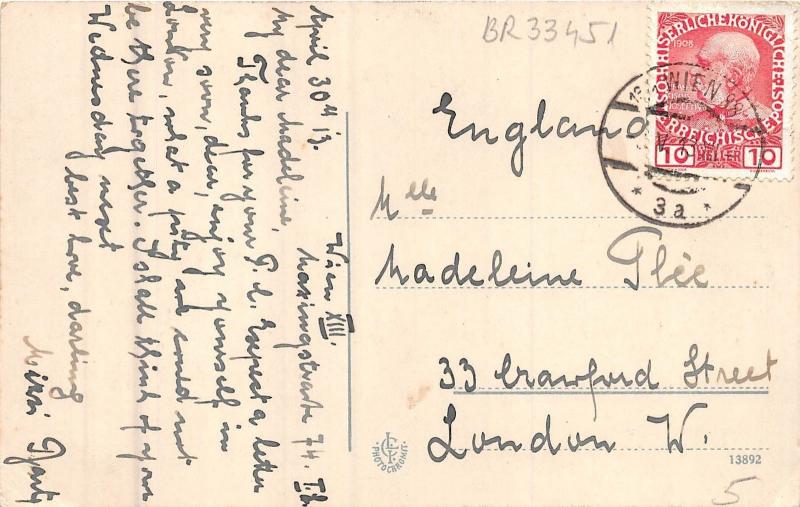 BR33451
April 30th 13.
Wien XIII.
Maxingstrasse 74.
My dear Madeleine,
Thanks for your P.C. Expect a letter
very soon, dear, enjoy yourself in
London, what a pity we could not
be there together. I shall think of you
Wednesday next
best love, darling
Mizzi
England
Mlle
Madeleine Plée
33 Crawford Street
London W.
KAISERLICHE KÖNIGLICHE ÖSTERREICHISCHE
1908
10 HELLER 10
WIEN
3a
PHOTOCHROMIE
13892
5